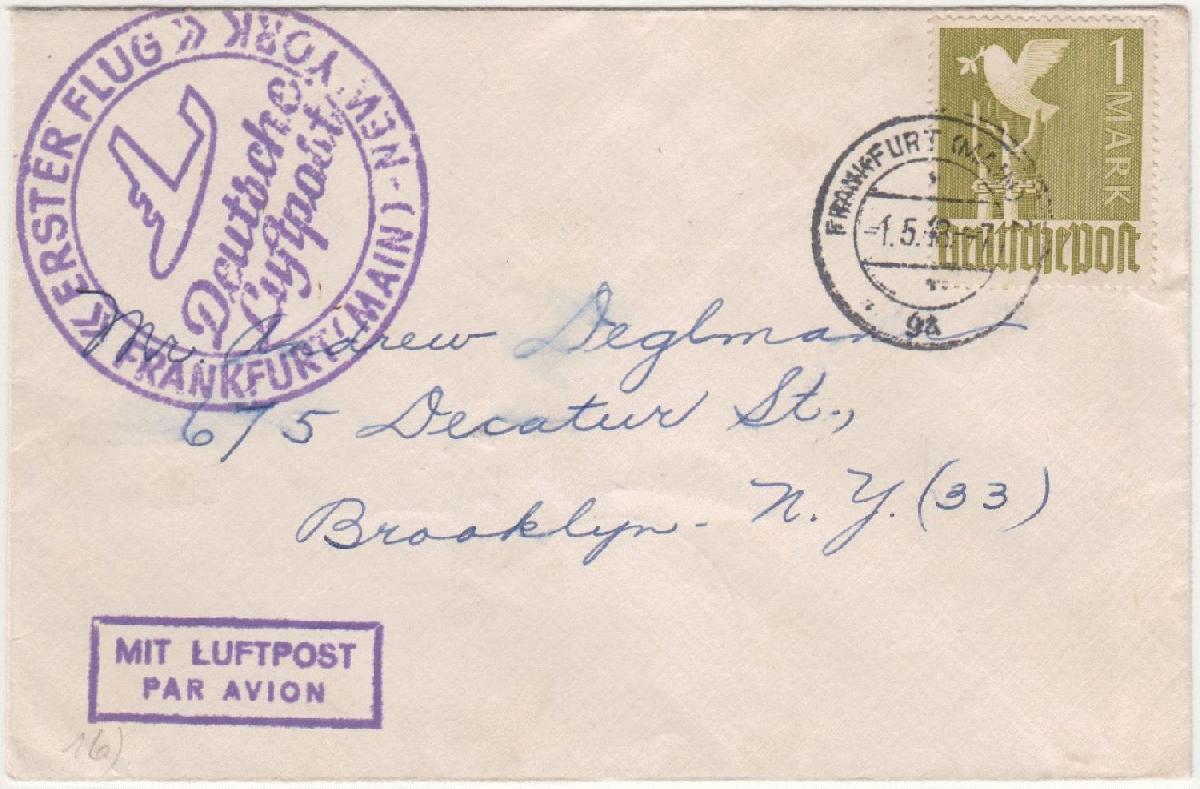 « ERSTER FLUG » FRANKFURT (MAIN) - NEW YORK
Deutsche
Luftpost
1 MARK
Deutsche Post
FRANKFURT (MAIN)
-1.5.48.--7
Mr. Andrew Deglmann
675 Decatur St.,
Brooklyn - N.Y. (33)
MIT LUFTPOST
PAR AVION
16)